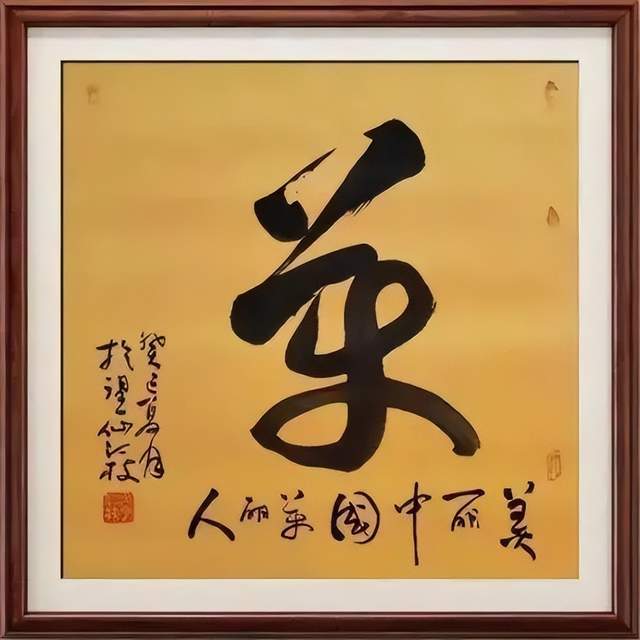 美
美丽中国美丽人
癸巳夏月
於仙